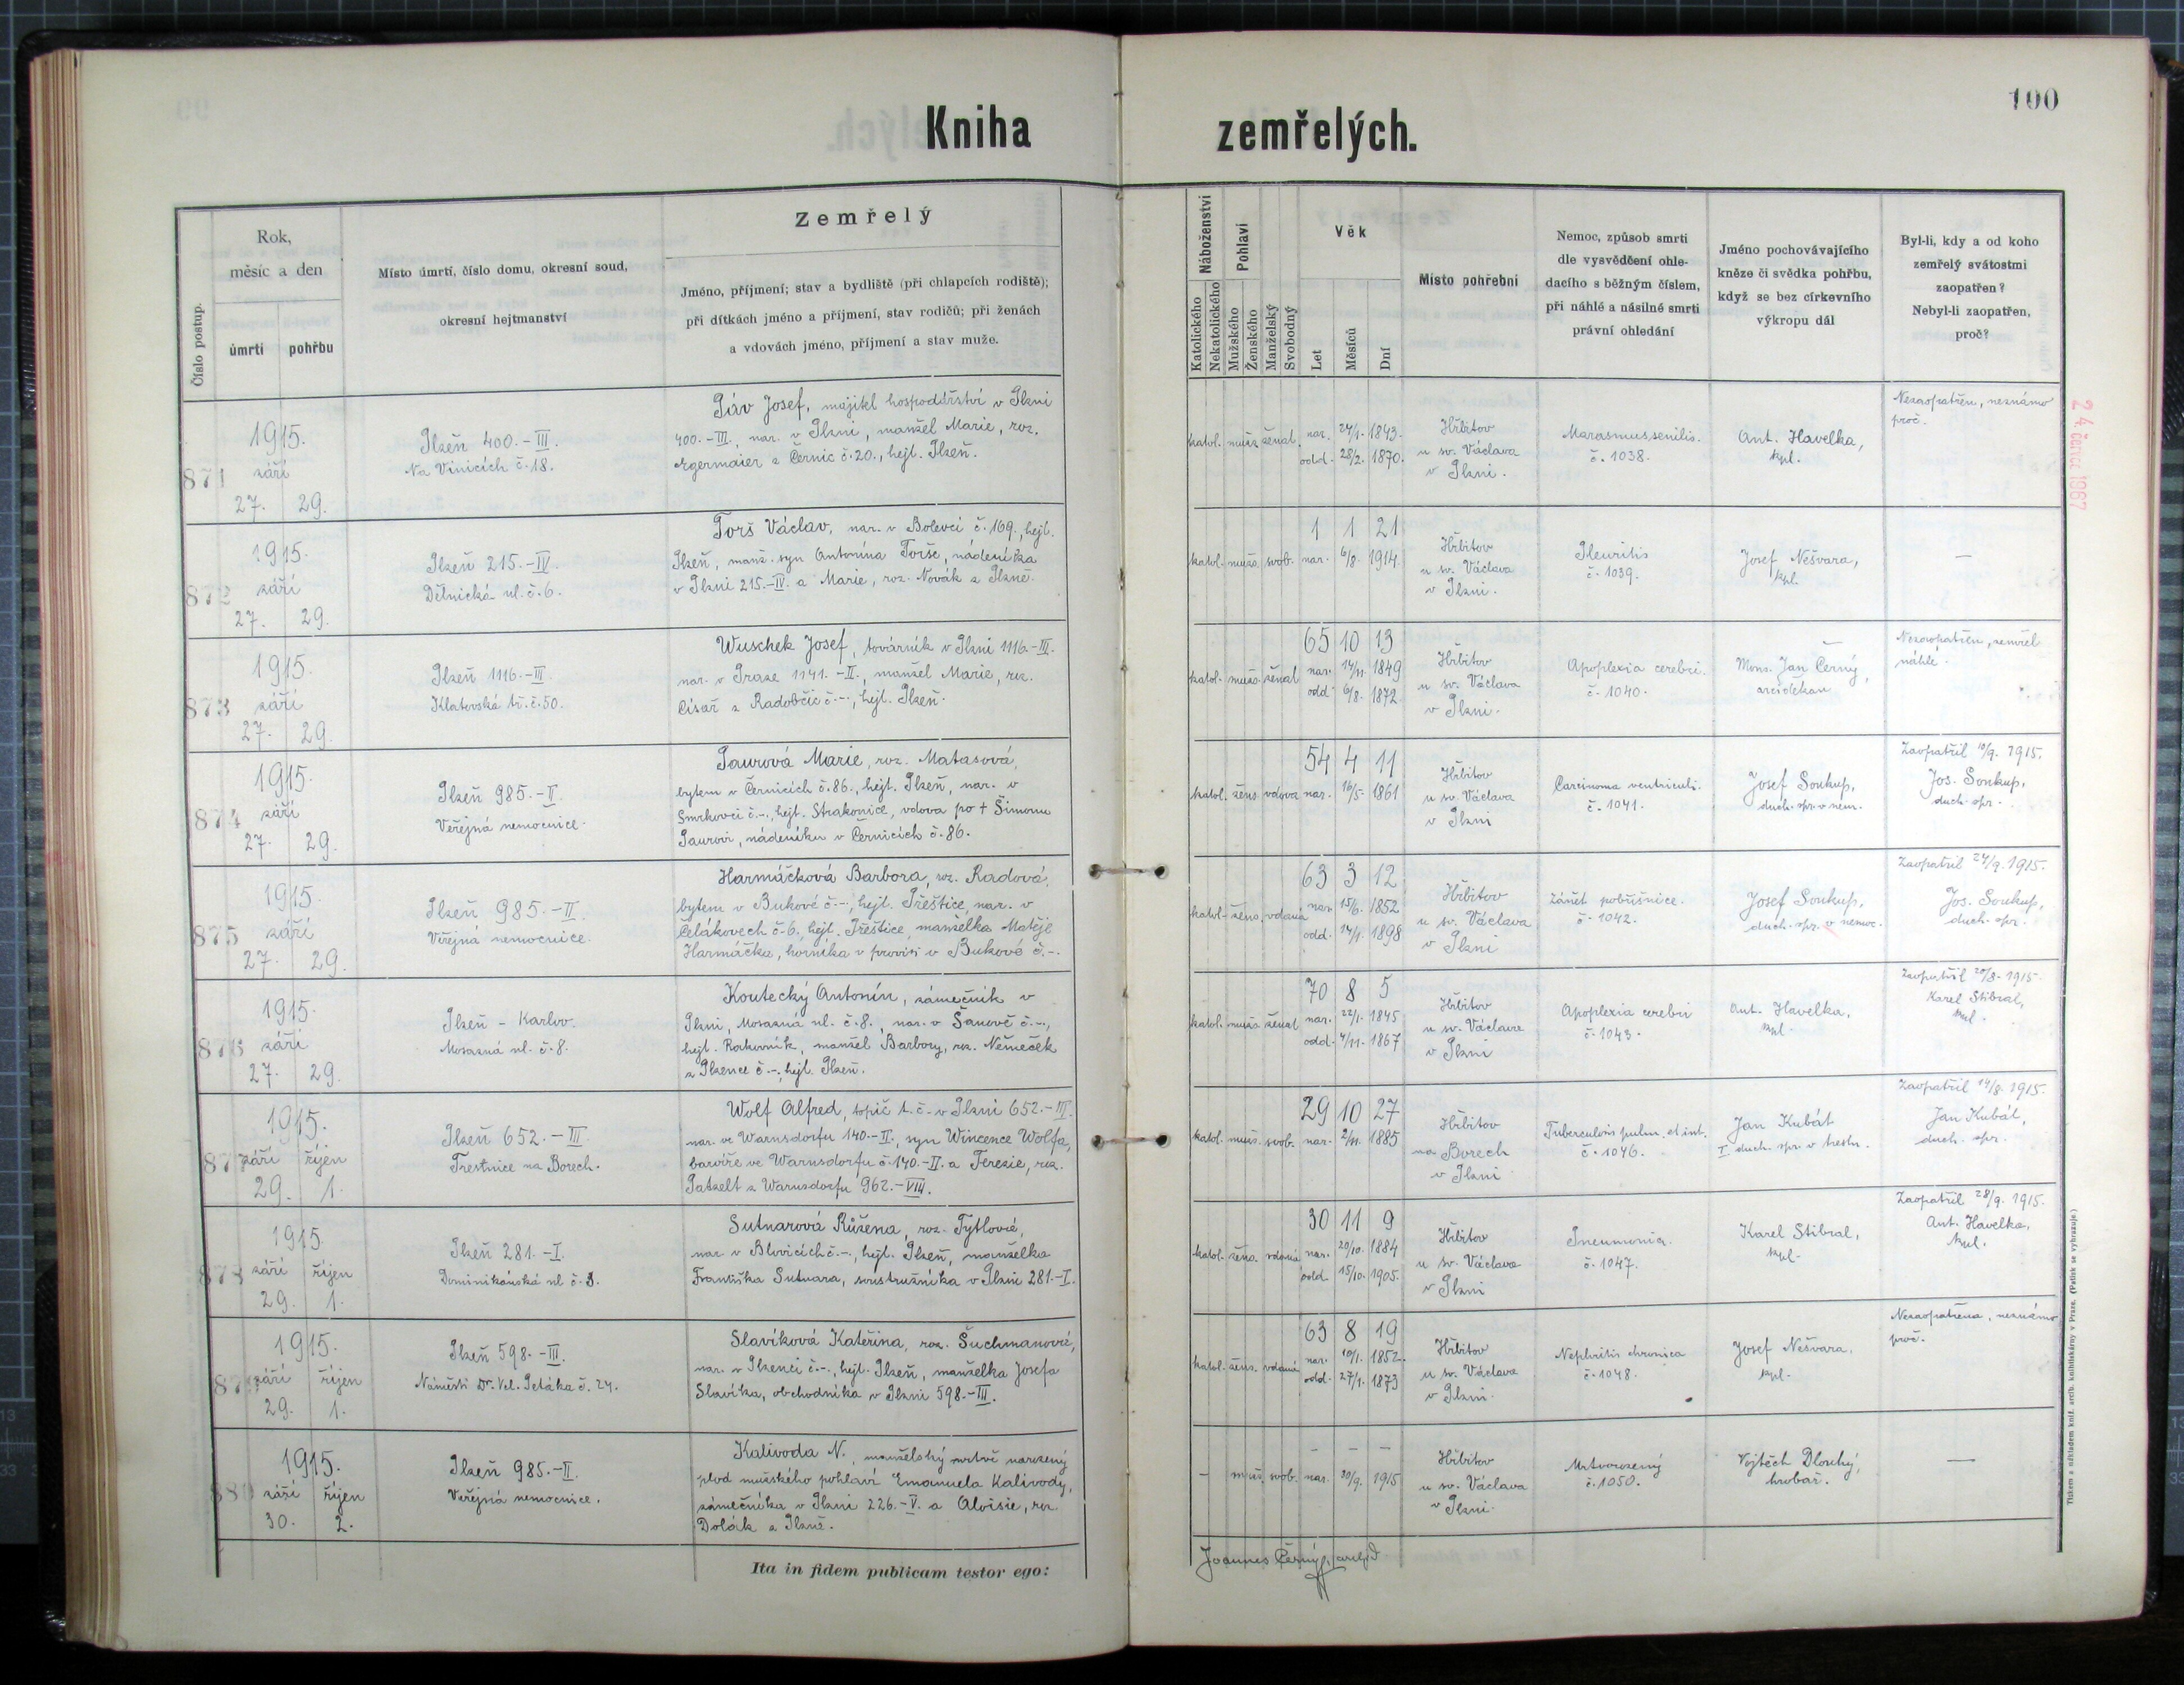 Kniha zemřelých.
100
Číslo postup.
Rok,
měsíc a den
úmrtí
pohřbu
Místo úmrtí, číslo domu, okresní soud,
okresní hejtmanství
Zemřelý
Jméno, příjmení; stav a bydliště (při chlapcích rodiště);
při dítkách jméno a příjmení, stav rodičů; při ženách
a vdovách jméno, příjmení a stav muže.
Náboženství
Katolického
Nekatolického
Pohlaví
Mužského
Ženského
Manželský
Svobodný
Věk
Let
Měsíců
Dní
Místo pohřební
Nemoc, způsob smrti
dle vysvědčení ohle-
dacího s běžným číslem,
při náhlé a násilné smrti
právní ohledání
Jméno pochovávajícího
kněze či svědka pohřbu,
když se bez církevního
výkropu dál
Byl-li, kdy a od koho
zemřelý svátostmi
zaopatřen?
Nebyl-li zaopatřen,
proč?
871
1915.
září
27. 29.
Plzeň 400.-III.
Na Vinicích č.18.
Páv Josef, majitel hospodářství v Plzni
400.-III., nar. v Plzni, manžel Marie, roz.
Egermaier z Černic č.20., hejt. Plzeň.
katol. muž. ženat.
nar. 24/1. 1843.
odd. 28/2. 1870.
Hřbitov
u sv. Václava
v Plzni.
Marasmus senilis.
č. 1038.
Ant. Havelka,
kpl.
Nezaopatřen, neznámo
proč.
872
1915.
září
27. 29.
Plzeň 215.-IV.
Dělnická ul. č.6.
Torš Václav, nar. v Bolevci č.169., hejt.
Plzeň, manž. syn Antonína Torše, nádeníka
v Plzni 215.-IV. a Marie, roz. Novák z Plzně.
1 1 21
katol. mužs. svob. nar. 6/8. 1914.
Hřbitov
u sv. Václava
v Plzni.
Pleuritis
č. 1039.
Josef Nešvara,
kpl.
—
873
1915.
září
27. 29.
Plzeň 1116.-III.
Klatovská tř. č.50.
Wuschek Josef, továrník v Plzni 1116.-III.
nar. v Praze 1141.-II., manžel Marie, roz.
Císař z Radobčic č.-., hejt. Plzeň.
65 10 13
katol. mužs. ženat
nar. 14/11. 1849
odd. 6/8. 1872.
Hřbitov
u sv. Václava
v Plzni.
Apoplexia cerebri.
č. 1040.
Mons. Jan Černý,
arciděkan
Nezaopatřen, zemřel
náhle.
874
1915.
září
27. 29.
Plzeň 985.-II.
Veřejná nemocnice.
Paurová Marie, roz. Matasová,
bytem v Černicích č.86., hejt. Plzeň, nar. v
Smrkovci č.-., hejt. Strakonice, vdova po + Šimonu
Paurovi, nádeníku v Černicích č.86.
54 4 11
katol. žens. vdova nar. 16/5. 1861
Hřbitov
u sv. Václava
v Plzni
Carcinoma ventriculi.
č. 1041.
Josef Soukup,
duch. spr. v nem.
Zaopatřil 10/9. 1915.
Jos. Soukup,
duch. spr.
875
1915.
září
27. 29.
Plzeň 985.-II
Veřejná nemocnice.
Harmáčková Barbora, roz. Radová,
bytem v Bukové č.-., hejt. Přeštice, nar. v
Čelákovech č.6., hejt. Přeštice, manželka Matěje
Harmáčka, horníka v provisi v Bukové č.-.
63 3 12
katol. žens. vdaná
nar. 15/6. 1852
odd. 14/1. 1898
Hřbitov
u sv. Václava
v Plzni
Zánět pobřišnice.
č. 1042.
Josef Soukup,
duch. spr. v nemoc.
Zaopatřil 24/9. 1915.
Jos. Soukup,
duch. spr.
876
1915.
září
27. 29.
Plzeň - Karlov.
Mosazná ul. č.8.
Koutecký Antonín, zámečník v
Plzni, Mosazná ul. č.8., nar. v Šanově č.-.,
hejt. Rakovník, manžel Barbory, roz. Němeček
z Plzence č.-., hejt. Plzeň.
70 8 5
katol. mužs. ženat
nar. 22/1. 1845
odd. 4/11. 1867
Hřbitov
u sv. Václava
v Plzni
Apoplexia cerebri
č. 1043.
Ant. Havelka,
kpl.
Zaopatřil 20/8. 1915.
Karel Stibral,
kpl.
1915.
září říjen
29. 1.
Plzeň 652.-III.
Trestnice na Borech.
Wolf Alfred, topič t. č. v Plzni 652.-III.
nar. ve Warnsdorfu 140.-II., syn Wincence Wolfa,
barvíře ve Warnsdorfu č.140.-II. a Terezie, roz.
Patzelt z Warnsdorfu 962.-VIII.
29 10 27
katol. muž. svob. nar. 2/11. 1885
Hřbitov
na Borech
v Plzni
Tuberculosis pulm. et int.
č. 1046.
Jan Kubát
I. duch. spr. v trestn.
Zaopatřil 14/8. 1915.
Jan Kubát,
duch. spr.
878
1915.
září říjen
29. 1.
Plzeň 281.-I.
Dominikánská ul. č.3.
Sutnarová Růžena, roz. Tytlová,
nar. v Blovicích č.-., hejt. Plzeň, manželka
Františka Sutnara, soustružníka v Plzni 281.-I.
30 11 9
katol. žens. vdaná
nar. 20/10. 1884
odd. 15/10. 1905.
Hřbitov
u sv. Václava
v Plzni
Pneumonia.
č. 1047.
Karel Stibral,
kpl.
Zaopatřil 28/9. 1915.
Ant. Havelka,
kpl.
1915.
září říjen
29. 1.
Plzeň 598.-III.
Náměstí Dr. Vel. Petáka č. 24.
Slavíková Kateřina, roz. Šuchmanová,
nar. v Plzenci č.-., hejt. Plzeň, manželka Josefa
Slavíka, obchodníka v Plzni 598.-III.
63 8 19
katol. žens. vdaná
nar. 10/1. 1852.
odd. 27/1. 1873
Hřbitov
u sv. Václava
v Plzni.
Nephritis chronica
č. 1048.
Josef Nešvara,
kpl.
Nezaopatřena, neznámo
proč.
880
1915.
září říjen
30. 2.
Plzeň 985.-II.
Veřejná nemocnice.
Kalivoda N., manželský mrtvě narozený
plod mužského pohlaví Emanuela Kalivody,
zámečníka v Plzni 226.-V. a Aloisie, roz.
Dolák z Plzně.
– – –
– muž. svob. nar. 30/9. 1915
Hřbitov
u sv. Václava
v Plzni.
Mrtvorozený
č. 1050.
Vojtěch Dlouhý,
hrobař.
—
Ita in fidem publicam testor ego:
Joannes Černý,
24. února 1967
Tiskem a nákladem kníž. arcib. knihtiskárny v Praze. (Patisk se vyhrazuje.)